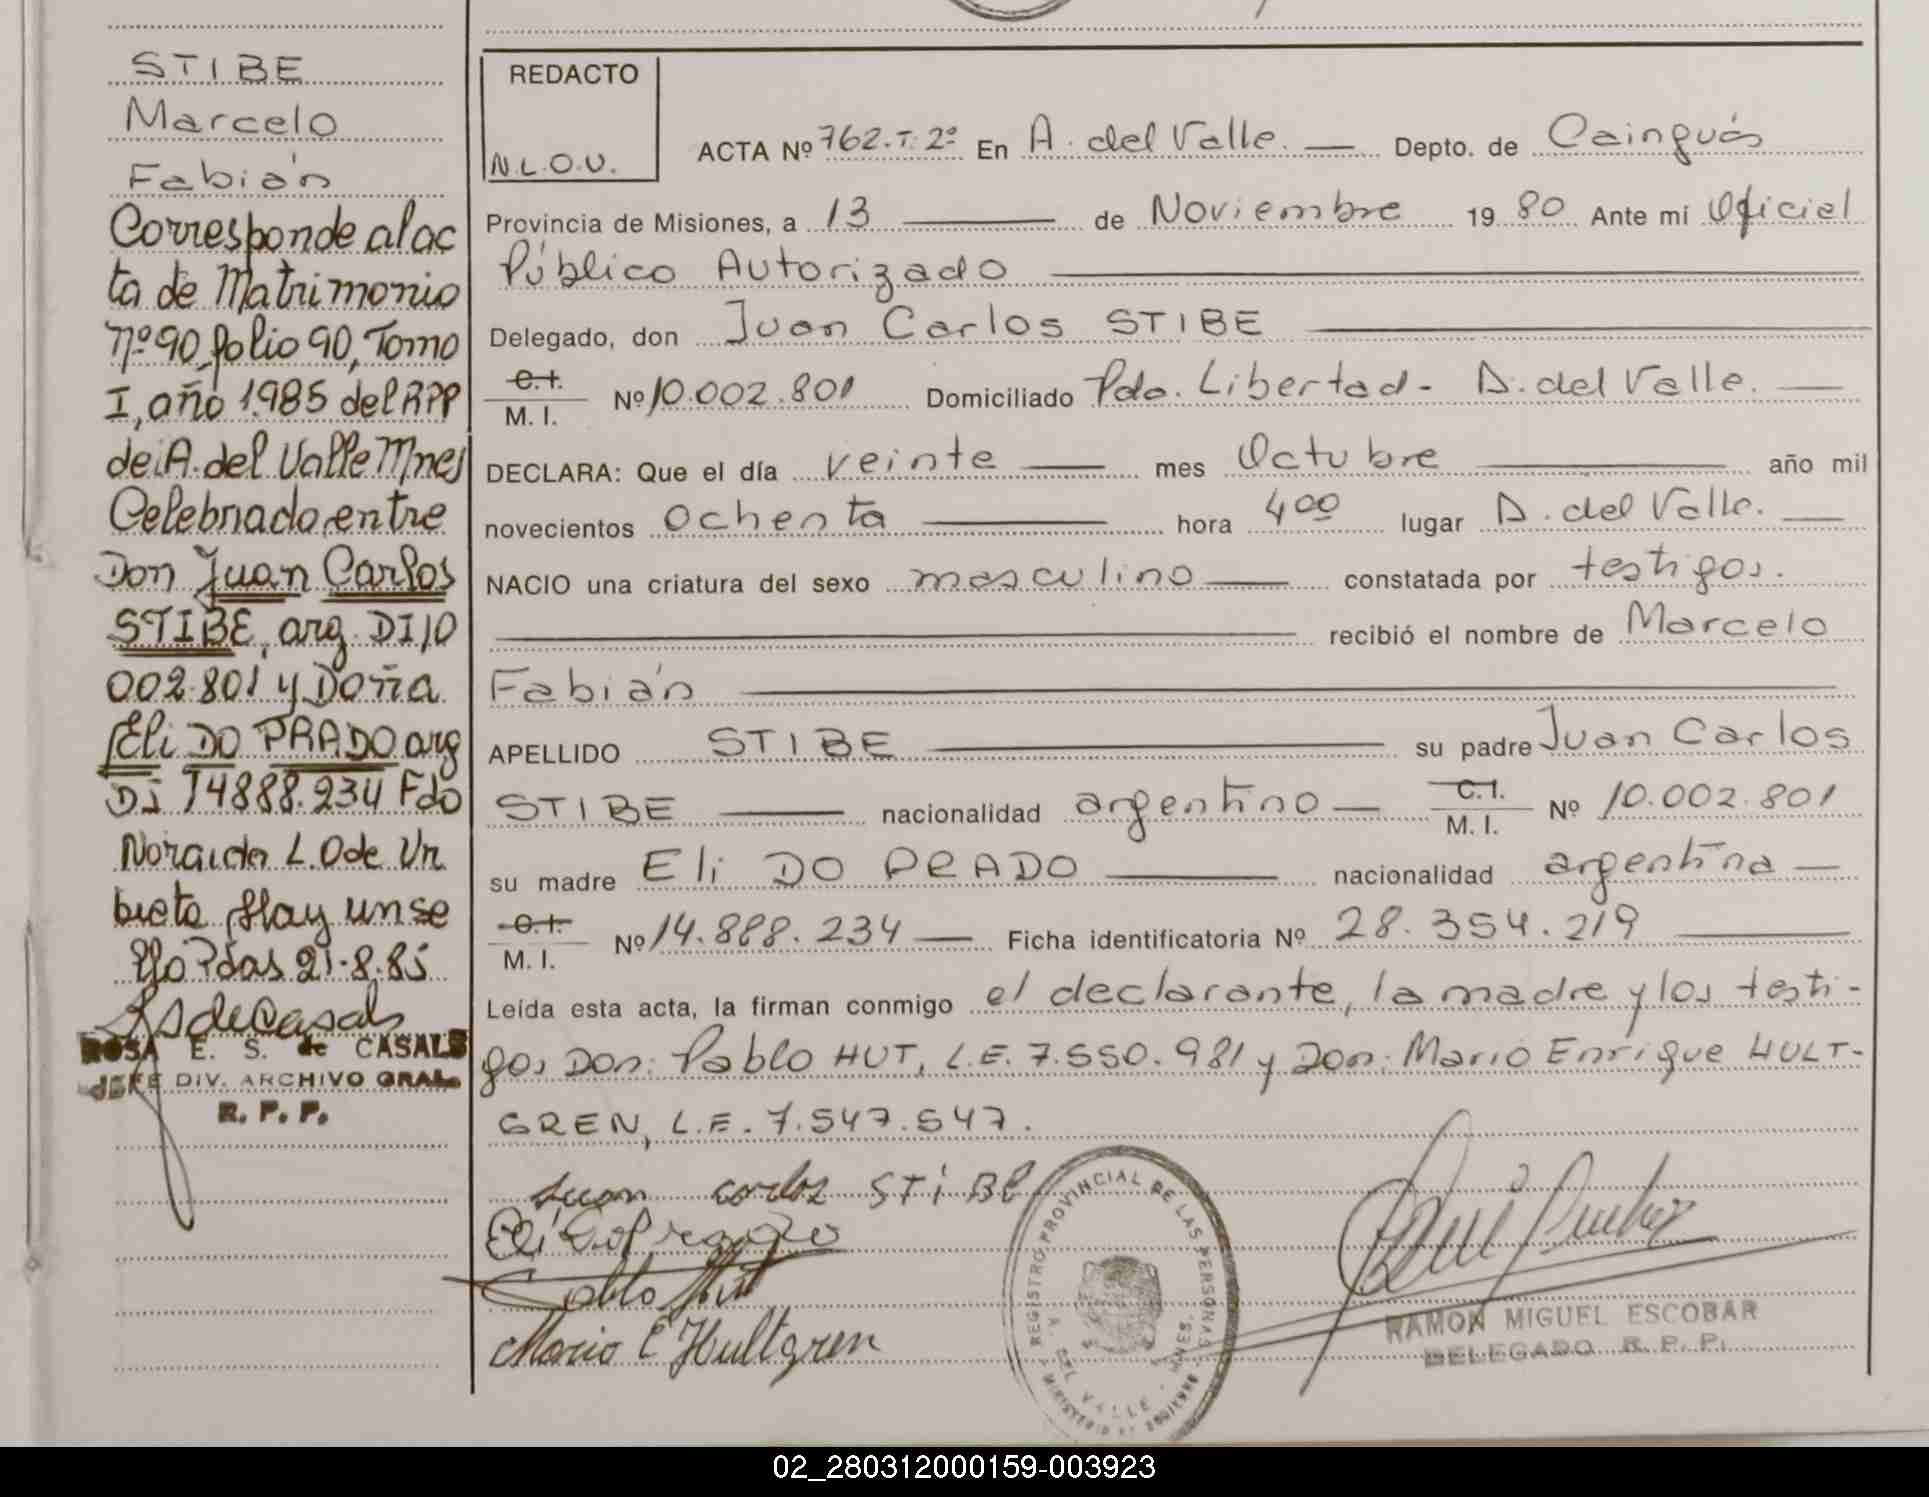 STIBE
Marcelo
Fabián
Corresponde al ac
ta de Matrimonio
Nº 90, folio 90, Tomo
I, año 1985 del RPP
de A. del Valle Mnes
Celebrado entre
Don Juan Carlos
STIBE, arg. DI 10
002.801 y Doña
Eli DO PRADO arg
DI 14888.234 Fdo
Noraida L. O de Ur
bieta Hay un se
llo Pdas 21-8-85
ROSA E. S. de CASALS
JEFE DIV. ARCHIVO GRAL.
R. P. P.
REDACTO
N.L.O.U.
ACTA Nº 762.T:2º En A. del Valle. — Depto. de Cainguás
Provincia de Misiones, a 13 — de Noviembre 1980 Ante mí Oficial
Público Autorizado
Delegado, don Juan Carlos STIBE
C.I.
M. I. Nº 10.002.801 Domiciliado Pdo. Libertad - A. del Valle. —
DECLARA: Que el día veinte — mes Octubre — año mil
novecientos ochenta — hora 4 00 lugar A. del Valle. —
NACIO una criatura del sexo masculino — constatada por testigos.
— recibió el nombre de Marcelo
Fabián —
APELLIDO STIBE — su padre Juan Carlos
STIBE — nacionalidad argentino — C.I. M. I. Nº 10.002.801
su madre Eli DO PRADO — nacionalidad argentina —
C.I.
M. I. Nº 14.888.234 — Ficha identificatoria Nº 28.354.219 —
Leída esta acta, la firman conmigo el declarante, la madre y los testi-
gos Don: Pablo HUT, L.E. 7.550.981 y Don: Mario Enrique HULT-
GREN, L.E. 7.547.547.
Juan Carlos STiBE
Eli do prado
Pablo Hut
Mario E Hultgren
REGISTRO PROVINCIAL DE LAS PERSONAS
A. DEL VALLE - MNES.
MINISTERIO DE GOBIERNO
RAMON MIGUEL ESCOBAR
DELEGADO R. P. P.
02_280312000159-003923